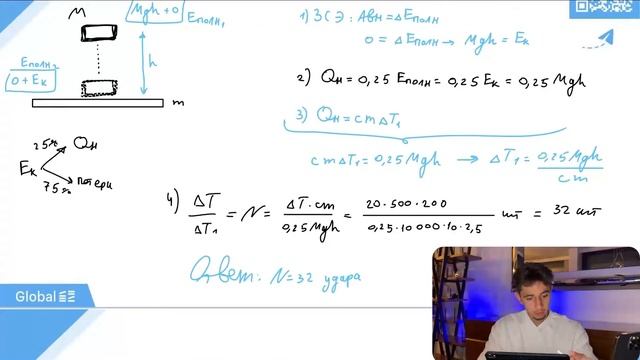 M
Mgh + 0 Eполн₁
h
Eполн₂
0 + Eк
m
Eк
25% Qн
75% потери
1) ЗСЭ: Aвн = ΔEполн
0 = ΔEполн → Mgh = Eк
2) Qн = 0,25 Eполн = 0,25 Eк = 0,25 Mgh
3) Qн = cmΔT₁
cmΔT₁ = 0,25 Mgh → ΔT₁ = 0,25 Mgh / cm
4) ΔT / ΔT₁ = N = ΔT·cm / 0,25 Mgh = 20·500·200 / 0,25·10 000·10·2,5 шт = 32 шт
Ответ: N = 32 удара
Global EE